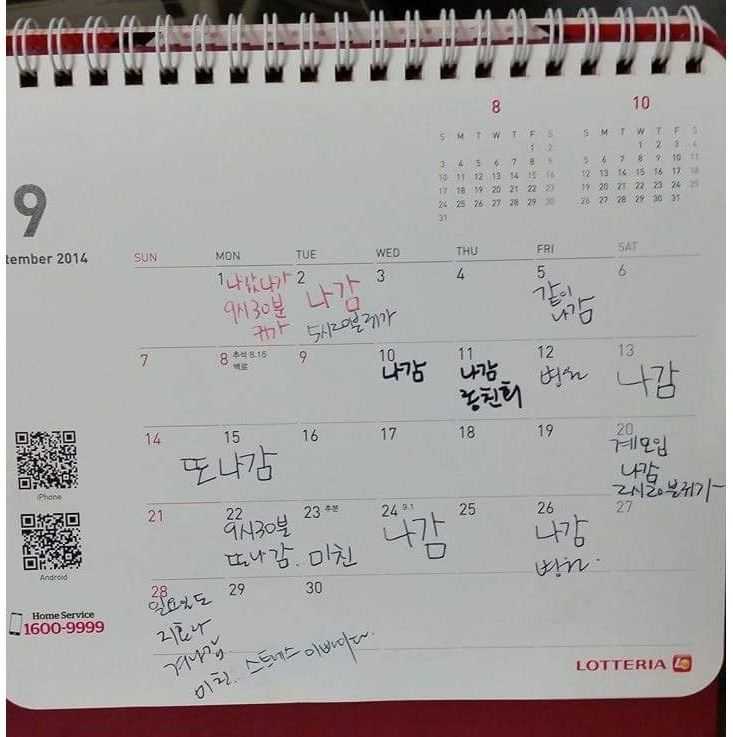 8
S M T W T F S
1 2
3 4 5 6 7 8 9
10 11 12 13 14 15 16
17 18 19 20 21 22 23
24 25 26 27 28 29 30
31
10
S M T W T F S
1 2 3 4
5 6 7 8 9 10 11
12 13 14 15 16 17 18
19 20 21 22 23 24 25
26 27 28 29 30 31
9
tember 2014
SUN MON TUE WED THU FRI SAT
1 2 3 4 5 6
9시30분
귀가
나감
5시20분귀가
같이
나감
7 8 추석 8.15 9 10 11 12 13
백로
나감
나감
동친회
병원
나감
14 15 16 17 18 19 20
또나감
계모임
나감
2시20분귀가
21 22 23 추분 24 9.1 25 26 27
9시30분
또나감. 미친
나감
나감
병원.
28 29 30
미친. 스트레스
iPhone
Android
Home Service
1600-9999
LOTTERIA